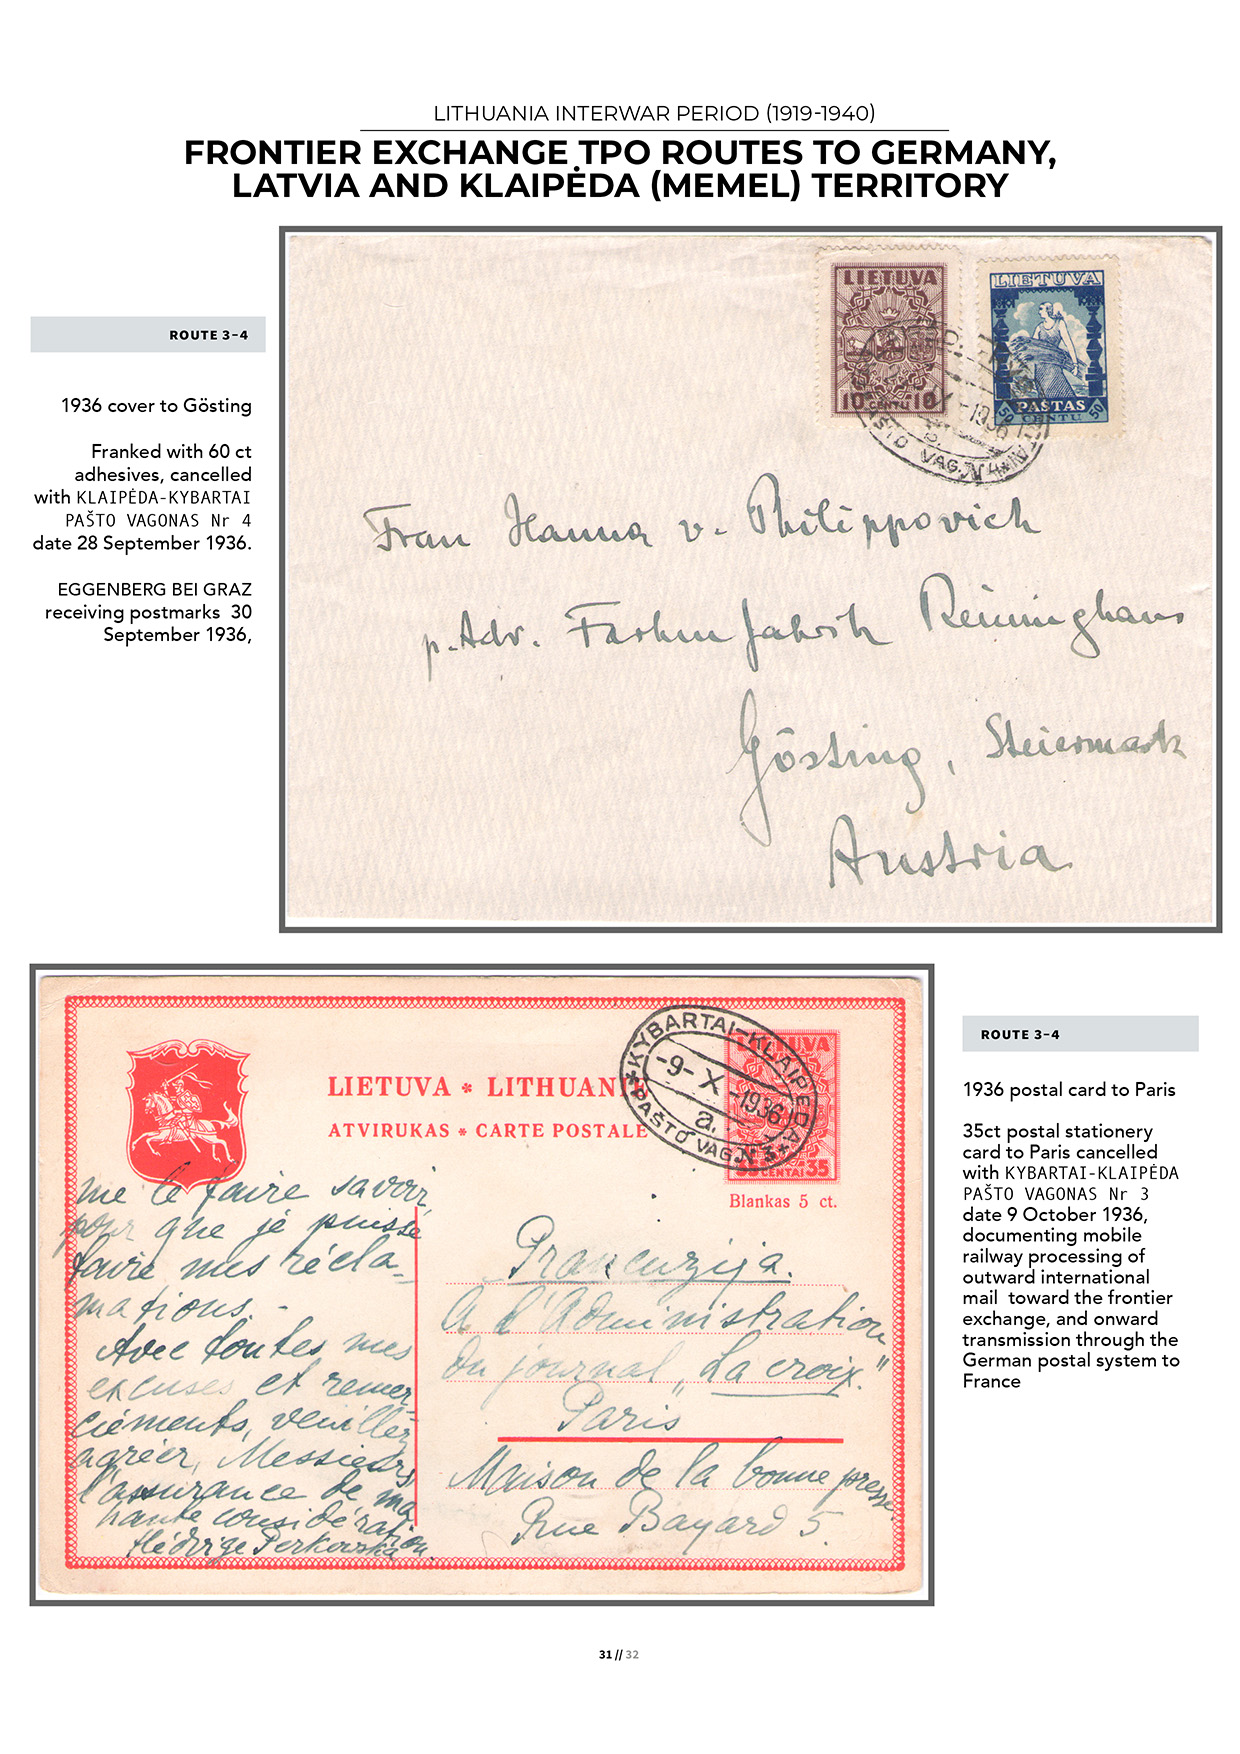 LITHUANIA INTERWAR PERIOD (1919-1940)
FRONTIER EXCHANGE TPO ROUTES TO GERMANY,
LATVIA AND KLAIPĖDA (MEMEL) TERRITORY
ROUTE 3-4
1936 cover to Gösting
Franked with 60 ct
adhesives, cancelled
with KLAIPĖDA-KYBARTAI
PAŠTO VAGONAS Nr 4
date 28 September 1936.
EGGENBERG BEI GRAZ
receiving postmarks 30
September 1936,
LIETUVA
10 CENTŲ 10
LIETUVA
PAŠTAS
50 CENTŲ 50
1936
PAŠTO VAG. N4
Frau Hanna v. Philippovich
p. Adr. Farbenfabrik Reininghaus
Gösting, Steiermark
Austria
LIETUVA * LITHUANIE
ATVIRUKAS * CARTE POSTALE
KYBARTAI-KLAIPĖDA
-9-X-1936
a.
PAŠTO VAG. N 3
LIETUVA
35 CENTAI 35
Blankas 5 ct.
me le faire savoir
pour que je puisse
faire mes récla-
mations. -
Avec toutes mes
excuses et remer-
ciements, veuillez
agréer, Messieurs
l'assurance de ma
haute considération.
Hédvige Perkowska
Prancuzija.
A l'Administration
du journal „La croix."
Paris
Maison de la bonne presse
Rue Bayard 5
ROUTE 3-4
1936 postal card to Paris
35ct postal stationery
card to Paris cancelled
with KYBARTAI-KLAIPĖDA
PAŠTO VAGONAS Nr 3
date 9 October 1936,
documenting mobile
railway processing of
outward international
mail toward the frontier
exchange, and onward
transmission through the
German postal system to
France
31 // 32